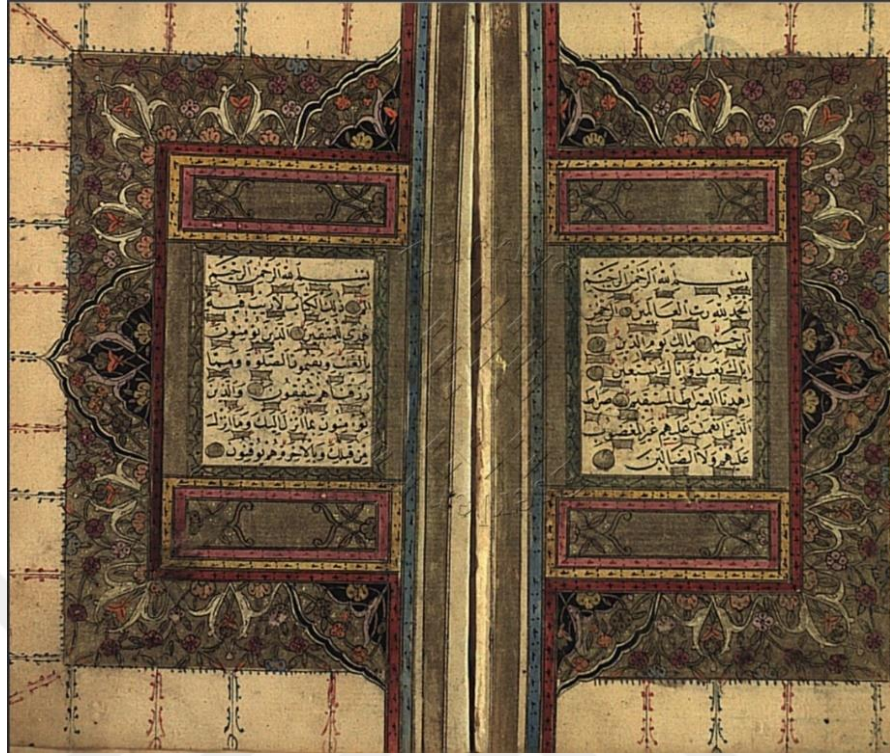 بسم الله الرحمن الرحيم
الحمد لله رب العالمين الرحمن
الرحيم مالك يوم الدين
اياك نعبد واياك نستعين
اهدنا الصراط المستقيم صراط
الذين انعمت عليهم غير المغضوب
عليهم ولا الضالين
بسم الله الرحمن الرحيم
الم ذلك الكتاب لا ريب فيه
هدى للمتقين الذين يؤمنون
بالغيب ويقيمون الصلوة ومما
رزقناهم ينفقون والذين
يؤمنون بما انزل اليك وما انزل
من قبلك وبالاخرة هم يوقنون